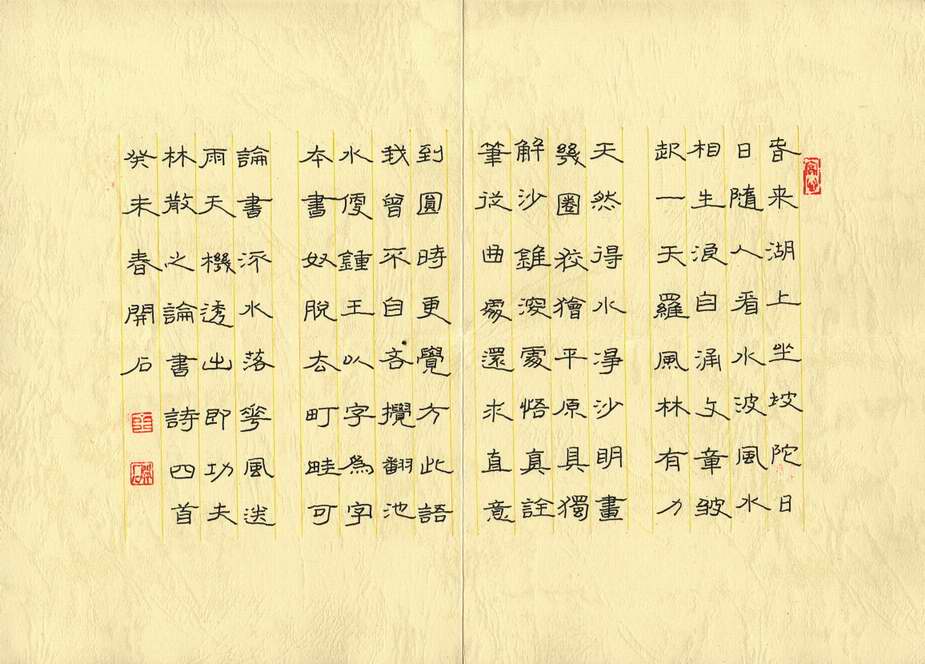 春来湖上坐坡陀日
日隨人看水波風水
相生浪自涌文章皱
起一天羅風林有力
天然得水淨沙明畫
幾圈狡獪平原具獨
解沙錐深處悟真詮
筆從曲處還求直意
到圓時更覺方此語
我曾不自吝攪翻池
水便鍾王以字為字
本書奴脫去町畦可
論書流水落花風送
雨天機透出即功夫
林散之論書詩四首
癸未春開石